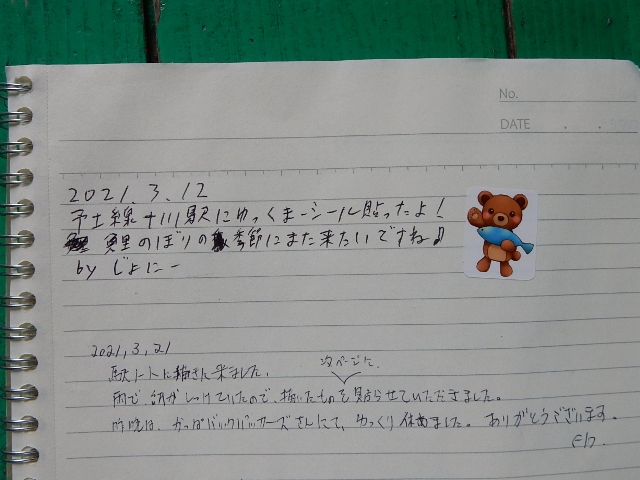 No.
DATE . .
2021.3.12
予土線十川駅にゆっくまーシール貼ったよ!
鯉のぼりの季節にまた来たいですね♪
by じょにー
2021,3,21
駅ノートに 来ました。
次ページに
雨で、 いたので、描いたものを貼らせていただきました。
昨晩は、かっぱバックパッカーズさんにて、ゆっくり休めました。ありがとうございます。